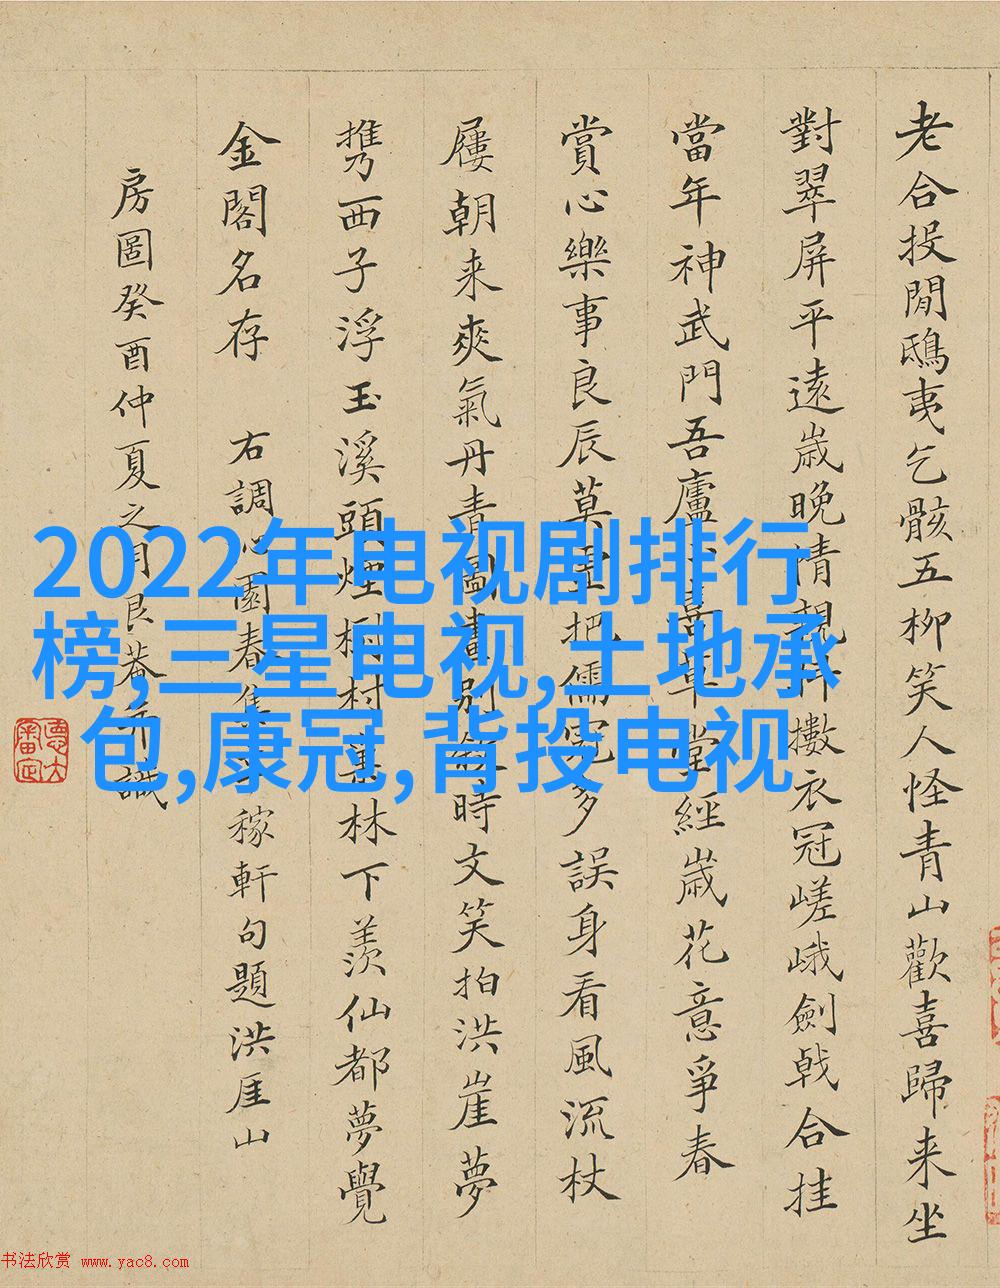 老合投閒鴟夷乞骸五柳笑人怪青山歡喜歸来坐
對翠屏平遠歳晚情親擻衣冠嵯峨劍戟合挂
當年神武門吾廬喜草堂經歳花意爭春
賞心樂事良辰莫把儒冠多誤身看風流杖
屨朝来爽氣丹青圖畫别時文笑拍洪崖夢
携西子浮玉溪頭煙樹村林下羨仙都夢覺
金閣名存 右調心園春集稼軒句題洪厓山
房圖癸酉仲夏之月艮菴并識
2022年电视剧排行
榜,三星电视,土地承
包,康冠,背投电视
书法欣赏 www.yac8.com